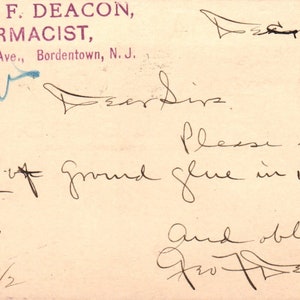 F. DEACON,
RMACIST,
Ave., Bordentown, N. J.
Dear Sirs
Please
of Ground glue in
And obl
Geo F De
1/2